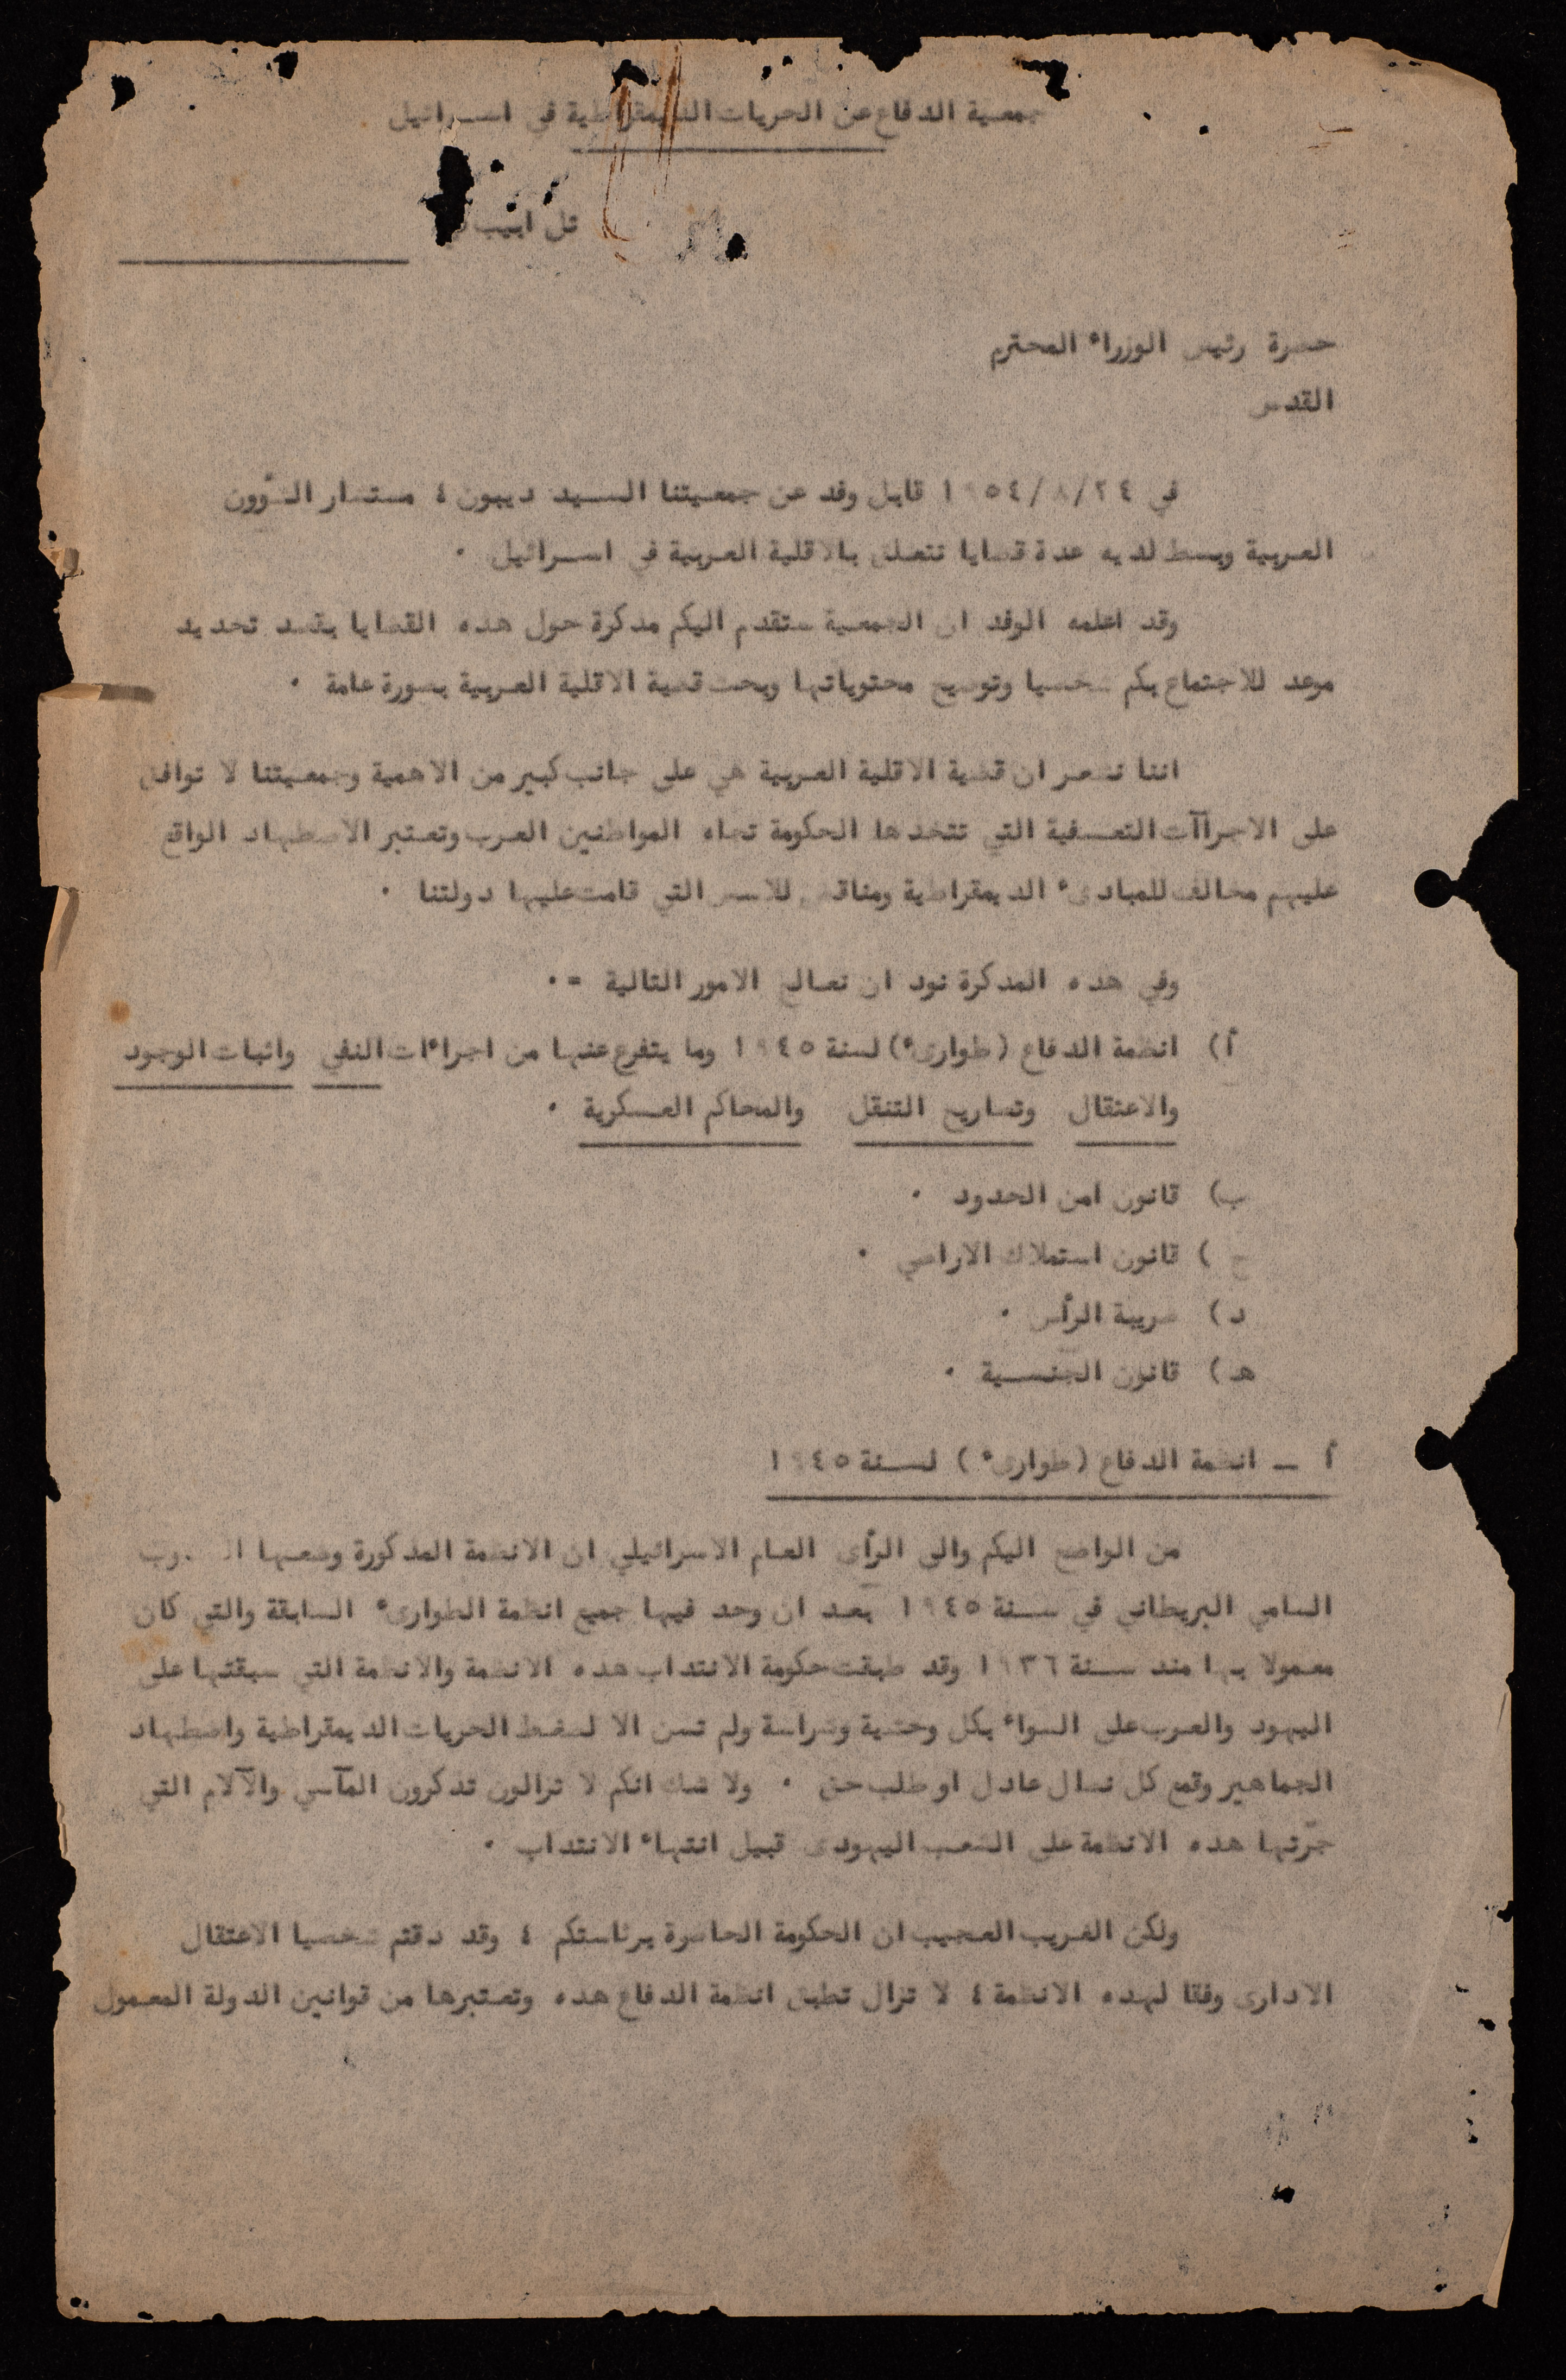 جمعية الدفاع عن الحريات الديمقراطية في اسرائيل
تل ابيب في
حضرة رئيس الوزراء المحترم
القدس
في ٢٤/٨/١٩٥٤ قابل وفد عن جمعيتنا السيد ديبون ، مستشار الشؤون
العربية وبسط لديه عدة قضايا تتعلق بالاقلية العربية في اسرائيل .
وقد اعلمه الوفد ان الجمعية ستقدم اليكم مذكرة حول هذه القضايا بقصد تحديد
موعد للاجتماع بكم شخصيا وتوضيح محتوياتها وبحث قضية الاقلية العربية بصورة عامة .
اننا نشعر ان قضية الاقلية العربية هي على جانب كبير من الاهمية وجمعيتنا لا توافق
على الاجراآت التعسفية التي تتخذها الحكومة تجاه المواطنين العرب وتعتبر الاضطهاد الواقع
عليهم مخالف للمبادىء الديمقراطية ومناقض للاسس التي قامت عليها دولتنا .
وفي هذه المذكرة نود ان نعالج الامور التالية =.
أ) انظمة الدفاع (طوارىء) لسنة ١٩٤٥ وما يتفرع عنها من اجراءات النفي واثبات الوجود
والاعتقال وتصاريح التنقل والمحاكم العسكرية .
ب) قانون امن الحدود .
ج ) قانون استملاك الاراضي .
د ) ضريبة الرأس .
هـ ) قانون الجنسية .
أ ــ انظمة الدفاع (طوارىء ) لسنة ١٩٤٥
من الواضح اليكم والى الرأى العام الاسرائيلي ان الانظمة المذكورة وضعها
السامي البريطاني في سنة ١٩٤٥ بعد ان وحد فيها جميع انظمة الطوارىء السابقة والتي كان
معمولا بها منذ سنة ١٩٣٦ وقد طبقت حكومة الانتداب هذه الانظمة والانظمة التي سبقتها على
اليهود والعرب على السواء بكل وحشية وشراسة ولم تسن الا لضغط الحريات الديمقراطية واضطهاد
الجماهير وقمع كل نضال عادل او طلب حق . ولا شك انكم لا تزالون تذكرون المآسي والآلام التي
جرّتها هذه الانظمة على الشعب اليهودى قبيل انتهاء الانتداب .
ولكن الغريب العجيب ان الحكومة الحاضرة برئاستكم ، وقد ذقتم شخصيا الاعتقال
الادارى وفقا لهذه الانظمة ، لا تزال تطبق انظمة الدفاع هذه وتعتبرها من قوانين الدولة المعمول